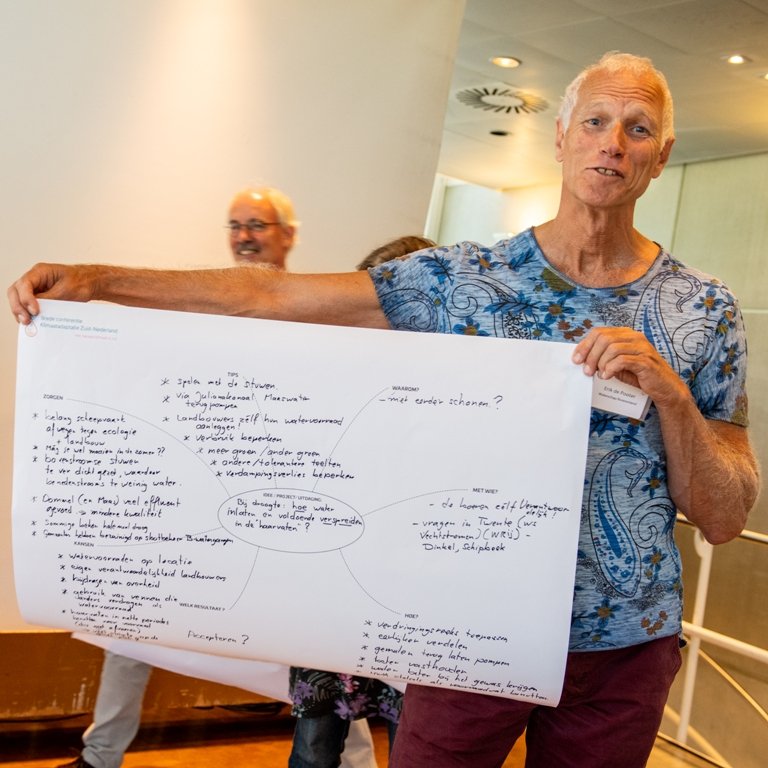 Klimaatadaptatie Zuid-Nederland
TIPS
* spelen met de stuwen
* via Julianakanaal Maaswater
terugpompen
* Landbouwers zélf hun watervoorraad
aanleggen!
* verbruik beperken
* meer groen / ander groen
* andere/tolerantere teelten
* verdampingsverlies beperken
WAAROM?
– niet eerder schonen?
ZORGEN
* belang scheepvaart
afwegen tegen ecologie
+ landbouw
* Mag je wel maaien in de zomer??
* bovenstroomse stuwen
te ver dicht gezet, waardoor
benedenstrooms te weinig water.
* Dommel (en Maas) veel effluent
gevoed -> mindere kwaliteit
* Sommige beken helemaal droog
* Gemeenten hebben bezuinigd op
IDEE / PROJECT / UITDAGING
Bij droogte: hoe water
inlaten en voldoende verspreiden
in de "haarvaten"?
MET WIE?
– de boeren zélf
– vragen in Twente (WS
Vechtstromen) (WRIJ) –
Dinkel, Schipbeek
Erik de Ponter
KANSEN
* watervoorraden op locatie
* eigen verantwoordelijkheid landbouwers
* bijdragen van overheid
* gebruik van vennen die
als
watervoorraad
in natte periodes
WELK RESULTAAT?
Accepteren?
HOE?
* verdringingsreeks toepassen
* eerlijker verdelen
* gemalen terug laten pompen
* water vasthouden
* water beter bij het gewas krijgen